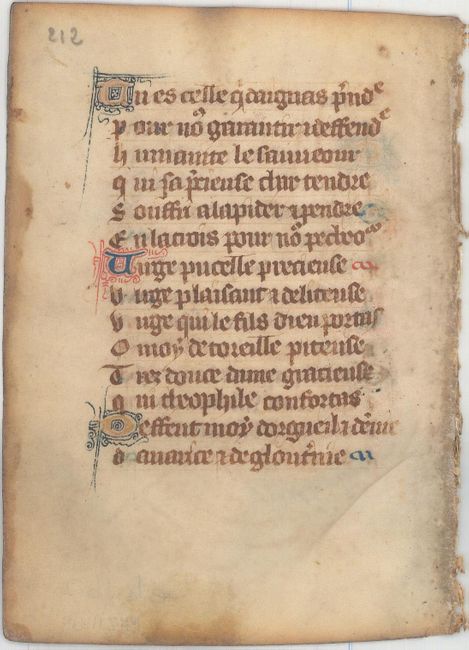 212
Tu es celle q̃ daignas p̃ndᵉ
Pour noᵒ garantir ⁊ deffendᵉ
humainte le sauueour
qui sa p̃cieuse char tendre
Souffri a lapider ⁊ pendre
En la crois pour noᵒ
Uirge pucelle precieuse
Virge plaisant ⁊ deliteuse
Virge qui le fils dieu portas
O moy de toreille piteuse
Trez douce dame gracieuse
qui theophile confortas
Deffent moy dorgueil ⁊
dauarice ⁊ de